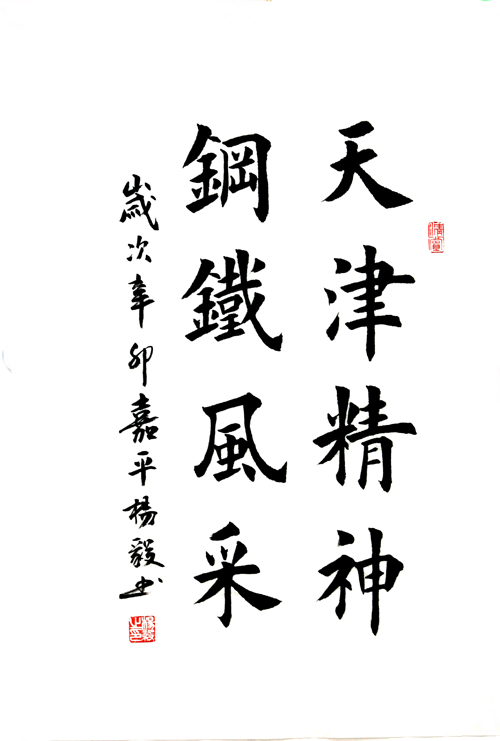 天津精神
鋼鐵風采
歲次辛卯嘉平楊毅书